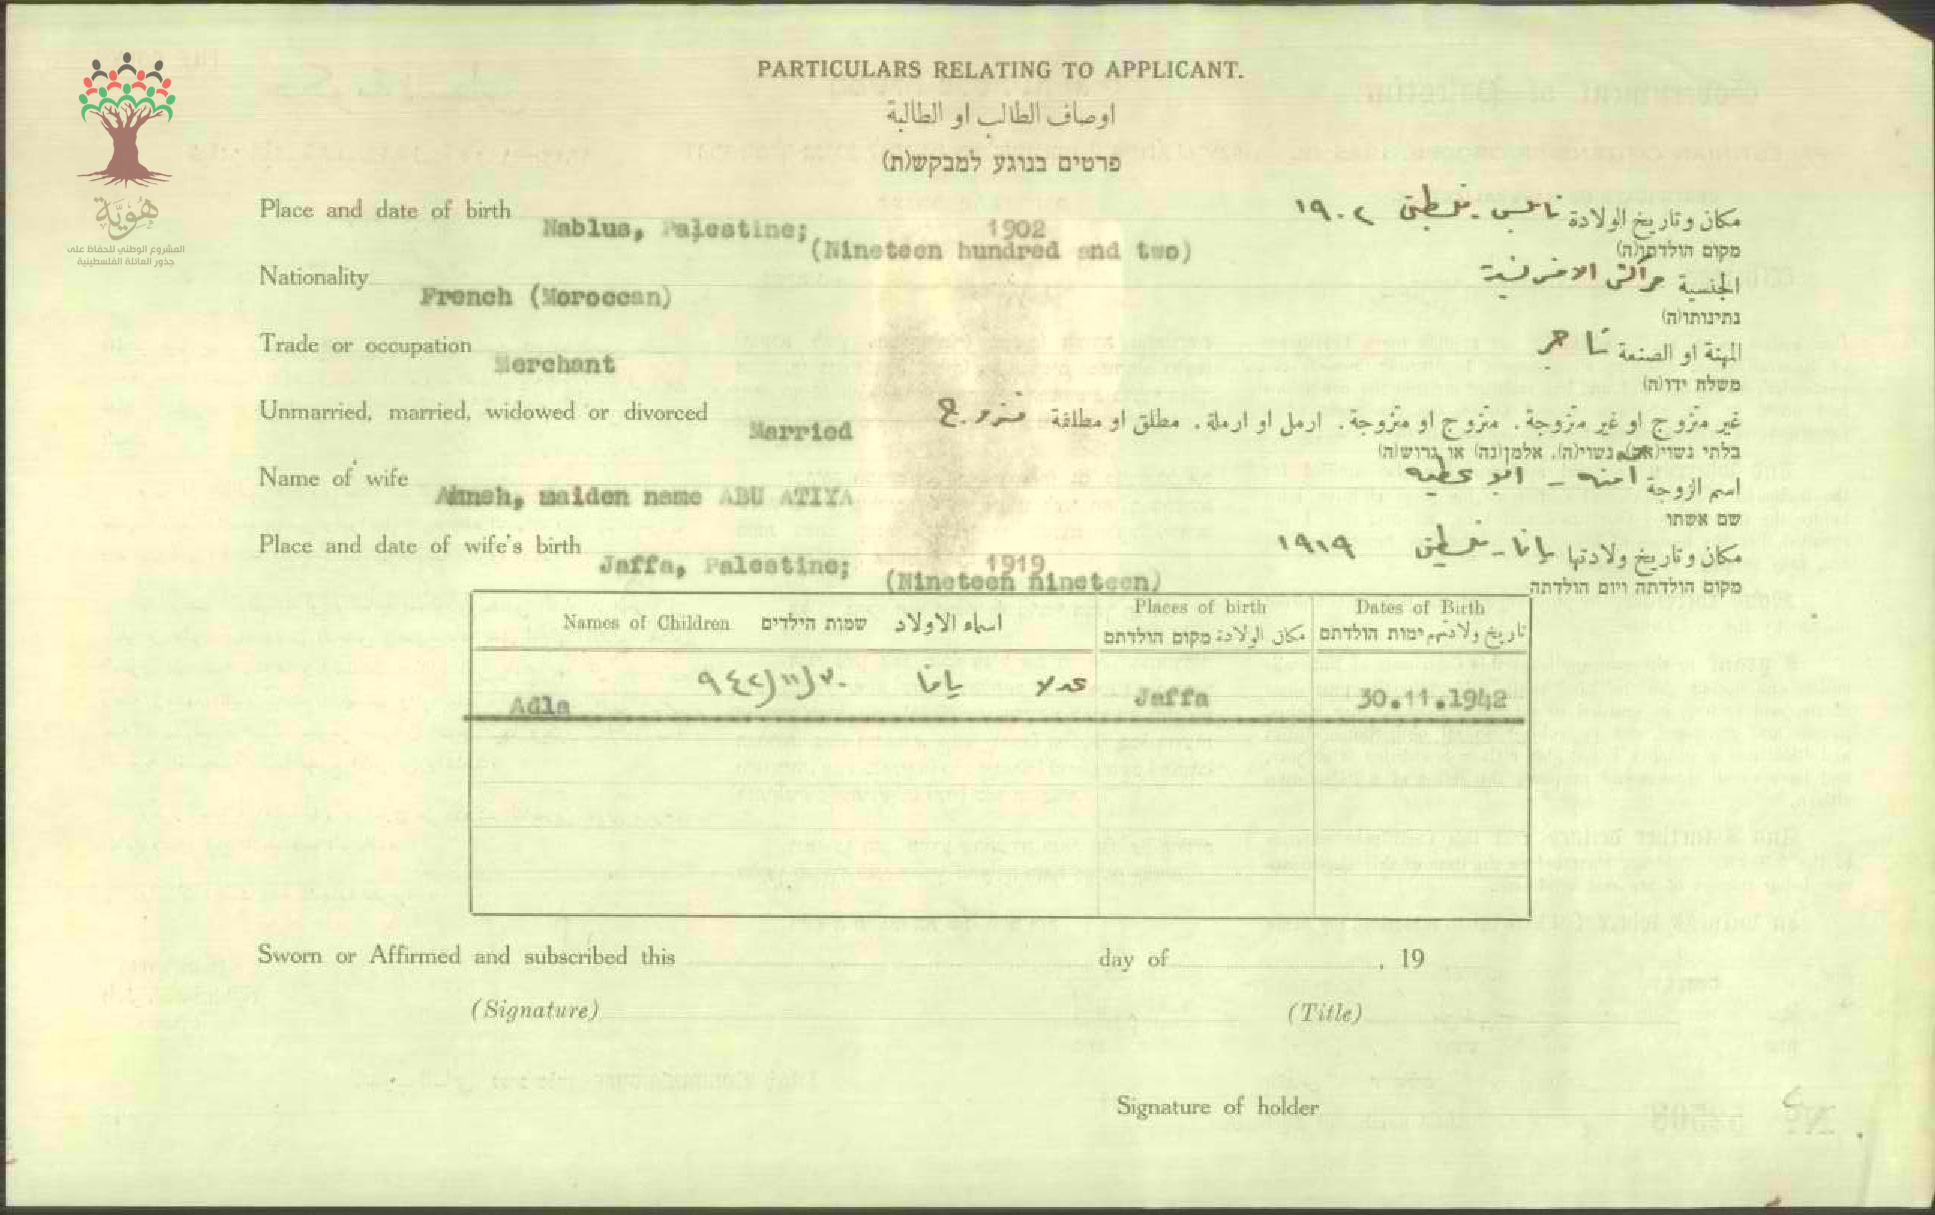 PARTICULARS RELATING TO APPLICANT.
اوصاف الطالب او الطالبة
פרטים בנוגע למבקש(ת)
هُويَّة
المشروع الوطني للحفاظ على
جذور العائلة الفلسطينية
Place and date of birth Nablus, Palestine; 1902 نابلس - فلسطين ١٩٠٢ مكان وتاريخ الولادة
(Nineteen hundred and two) מקום הולדתו(ה)
Nationality French (Moroccan) الجنسية مراكشي الافرنسية
נתינותו(ה)
Trade or occupation Merchant المهنة او الصنعة تاجر
משלח ידו(ה)
Unmarried, married, widowed or divorced Married غير متزوج او غير متزوجة . متزوج او متزوجة . ارمل او ارملة . مطلق او مطلقة متزوج
בלתי נשוי(אה), נשוי(ה), אלמן(נה) או גרוש(ה)
Name of wife Amneh, maiden name ABU ATIYA اسم الزوجة امنه - ابو عطيه
שם אשתו
Place and date of wife's birth Jaffa, Palestine; 1919 مكان وتاريخ ولادتها يافا - فلسطين ١٩١٩
(Nineteen nineteen) מקום הולדתה ויום הולדתה
Names of Children שמות הילדים اسماء الاولاد Places of birth Dates of Birth
مكان الولادة מקום הולדתם تاريخ ولادتهم ימות הולדתם
عدلا يافا ٣٠/١١/٩٤٢
Adla Jaffa 30.11.1942
Sworn or Affirmed and subscribed this day of , 19
(Signature) (Title)
Signature of holder